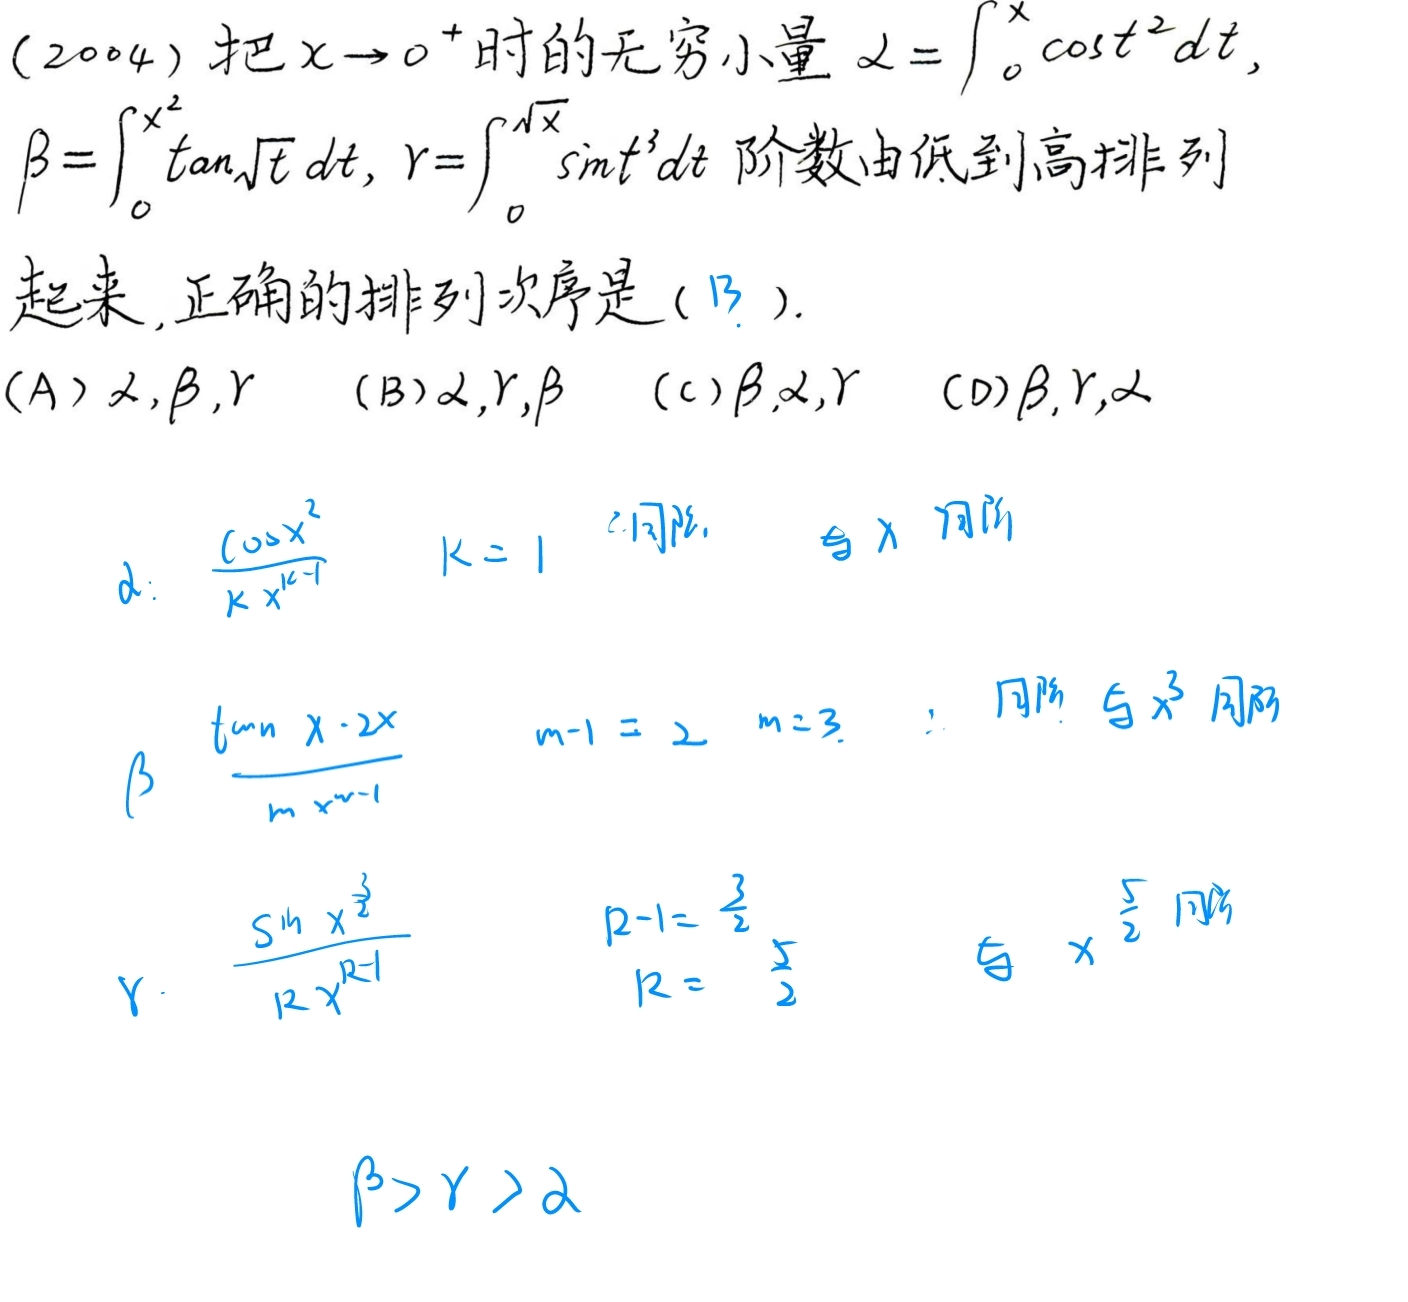 (2004) 把 x→0⁺ 时的无穷小量 α=∫₀ˣ cost²dt,
β=∫₀^{x²} tan√t dt, γ=∫₀^{√x} sint³dt 阶数由低到高排列
起来,正确的排列次序是( B ).
(A) α,β,γ (B) α,γ,β (C) β,α,γ (D) β,γ,α
α: \frac{cosx²}{k x^{k-1}} k=1 ∴同阶. 与 x 同阶
β \frac{tan x·2x}{m x^{m-1}} m-1=2 m=3. ∴ 同阶 与 x³ 同阶
γ. \frac{sin x^{\frac{3}{2}}}{k x^{k-1}} k-1=\frac{3}{2} k=\frac{5}{2} 与 x^{\frac{5}{2}} 同阶
β>γ>α